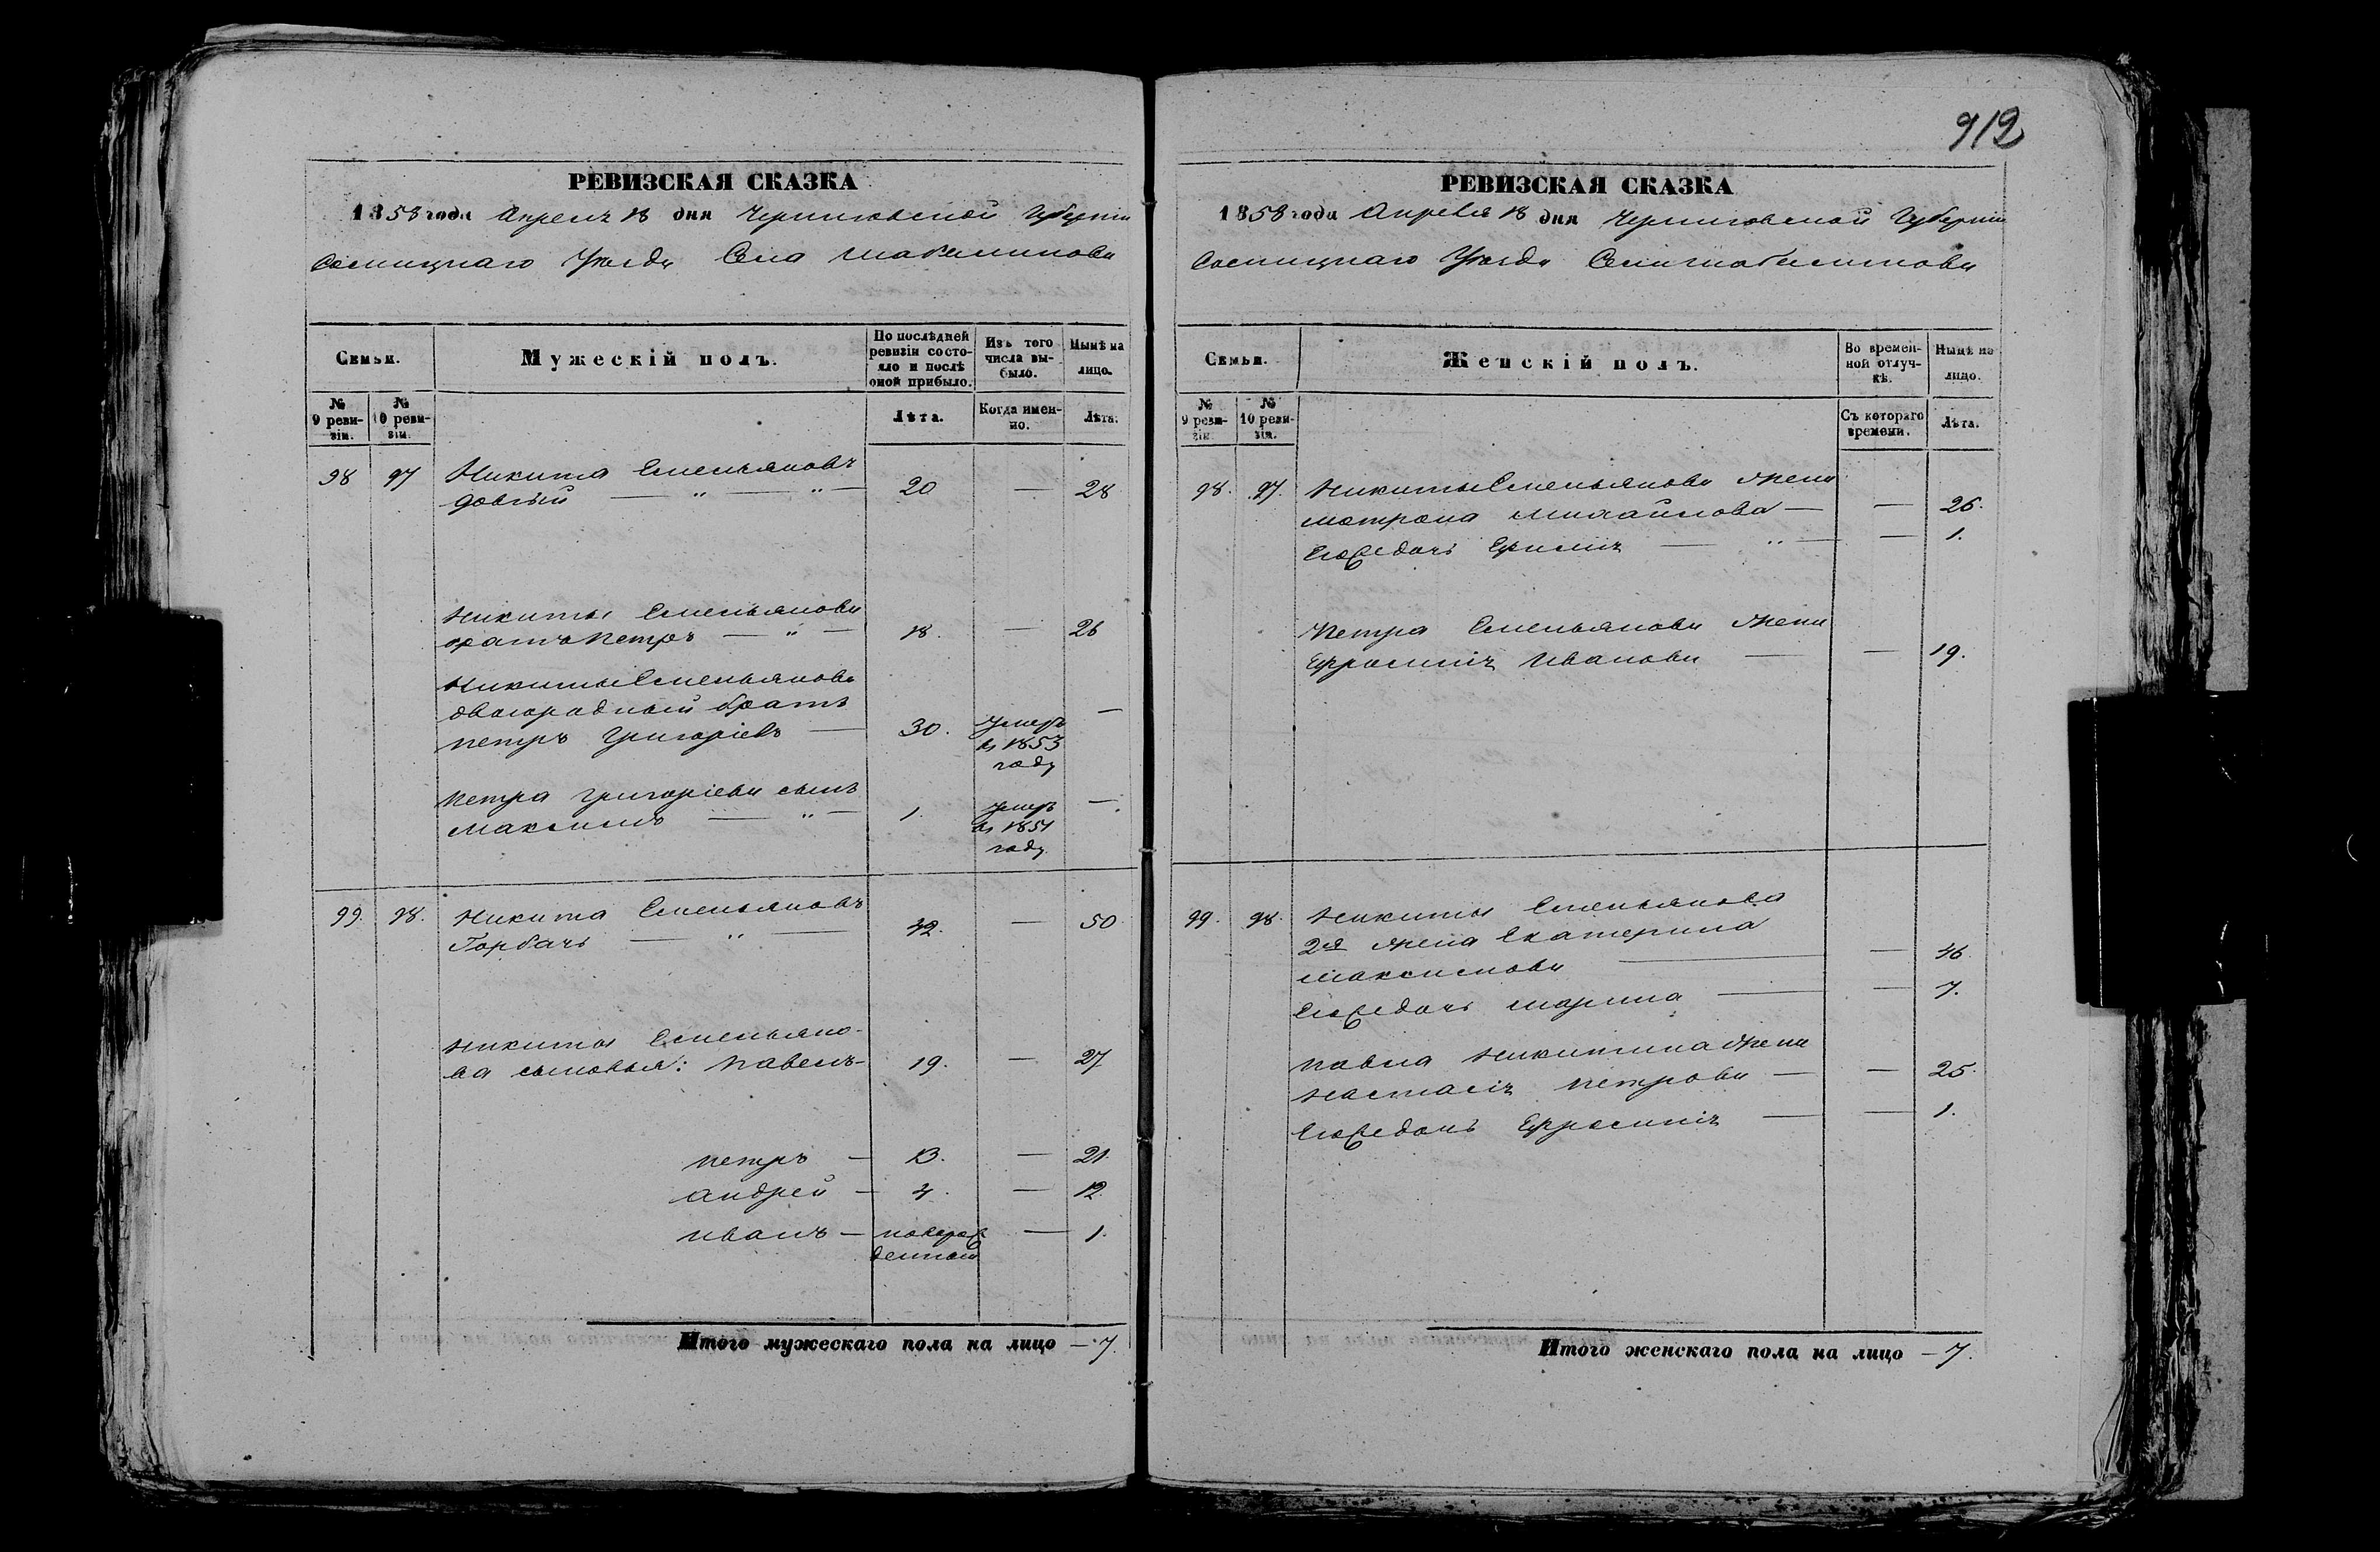 912
РЕВИЗСКАЯ СКАЗКА
1858 года Апреля 18 дня Черниговской Губерніи
Сосницкаго Уѣзда Села Шабалинова
Семьи.
Мужескій полъ.
По послѣдней ревизіи состояло и послѣ оной прибыло.
Изъ того числа выбыло.
Нынѣ на лицо.
№ 9 ревизіи.
№ 10 ревизіи.
Лѣта.
Когда именно.
Лѣта.
98 97 Никита Емельяновъ
Довгый — " — " — 20 — 28
Никиты Емельянова
братъ Петръ — " — 18. — 26
Никиты Емельянова
двоюродный братъ
Петръ Григоріевъ — 30. умеръ въ 1853 году —
Петра Григоріева сынъ
Максимъ — " — 1. умеръ въ 1851 году —
99. 98. Никита Емельяновъ
Горбачъ — " — 42. — 50
Никиты Емельяно-
ва сыновья: Павелъ - 19. — 27
Петръ — 13. — 21.
Андрей — 4. — 12.
Иванъ — новорожденный — 1.
Итого мужескаго пола на лицо — 7.
РЕВИЗСКАЯ СКАЗКА
1858 года Апреля 18 дня Черниговской Губерніи
Сосницкаго Уѣзда Села Шабалинова
Семьи.
Женскій полъ.
Во временной отлучкѣ.
Нынѣ на лицо.
№ 9 ревизіи.
№ 10 ревизія.
Съ котораго времени.
Лѣта.
98. 97. Никиты Емельянова жена
Мотрона Михайлова — — 26.
Его же дочь — " — — 1.
Петра Емельянова жена
Ефросинія Иванова — — 19.
99. 98. Никиты Емельянова
2я жена Екатерина
Максимова — — 46.
Его же дочь Марина — — 7.
Павла Никитина жена
Настасія Петрова — — 25.
Его же дочь Ефросинія — — 1.
Итого женскаго пола на лицо — 7.